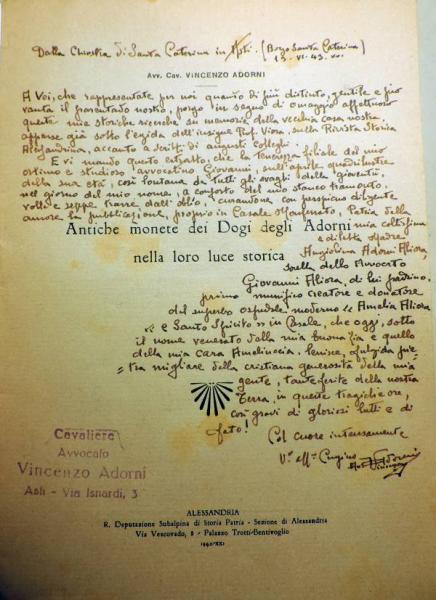 Dalla Chioslia di Santa Caterina in Asti. (Borgo Santa Caterina)
13-VI-43.
Avv. Cav. VINCENZO ADORNI
A Voi, che rappresentate per noi quanto di più distinto, gentile e pio
vanta il parentado nostro, porgo in segno di omaggio affettuoso
queste mie storiche ricerche su memorie della vecchia casa nostra,
apparse già sotto l'egida dell'insigne Prof. Viora, sulla Rivista Storica
Alessandrina, accanto a scritti di augusti colleghi.
E vi mando questo estratto, che la tenerezza filiale del mio
ottimo e studioso avvocatino Giovanni, sull'aprile quadrilustre
della sua età, così lontana da tutti gli svaghi della gioventù,
nel giorno del mio nome, a conforto del mio stanco tramonto,
volle e seppe trarre dall'oblio, curandone con perspicuo diligente
amore la pubblicazione, proprio in Casale Monferrato, Patria della
mia coltissima
e diletta Madre
Antiche monete dei Dogi degli Adorni
nella loro luce storica
Angiolina Adorni Aliora,
sorella dello Avvocato
Giovanni Aliora, di lui padrino,
primo munifico creatore e donatore
del superbo ospedale moderno « Amelia Aliora
« e Santo Spirito » in Casale, che oggi, sotto
il nome venerato della mia buona zia e quello
della mia cara Ameliuccia, lenisce, fulgida pie-
tra migliare della cristiana generosità della mia
gente, tante ferite della nostra
terra, in queste tragiche ore,
così gravi di gloriosi lutti e di
fato!
Col cuore intensamente
V. aff. Cugino
Adorni
Cavaliere
Avvocato
Vincenzo Adorni
Asti - Via Isnardi, 3
ALESSANDRIA
R. Deputazione Subalpina di Storia Patria - Sezione di Alessandria
Via Vescovado, 8 - Palazzo Trotti-Bentivoglio
1942-XXI